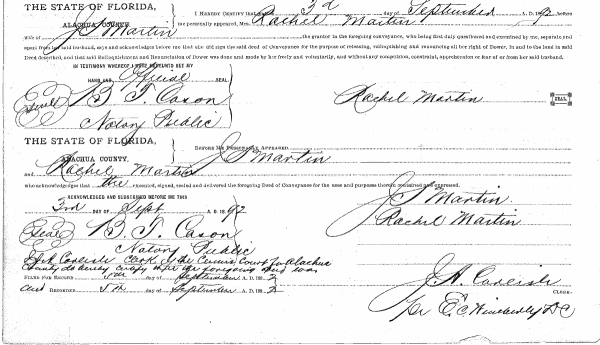 THE STATE OF FLORIDA, I HEREBY CERTIFY that on this 3d day of September A. D. 1892, before
ALACHUA COUNTY. me personally appeared, Mrs. Rachel Martin
wife of J S Martin the grantor in the foregoing conveyance, who being first duly questioned and examined by me, separate and
apart from her said husband, says and acknowledges before me that she did sign the said deed of Conveyance for the purpose of releasing, relinquishing and renouncing all her right of Dower, in and to the land in said
Deed described, and that said Relinquishment and Renunciation of Dower was done and made by her freely and voluntarily, and without any compulsion, constraint, apprehension or fear of or from her said husband.
IN TESTIMONY WHEREOF, I HAVE HEREUNTO SET MY
HAND AND Official SEAL
Seal B. T. Cason Rachel Martin SEAL
Notary Public
THE STATE OF FLORIDA,
ALACHUA COUNTY. BEFORE ME PERSONALLY APPEARED J S Martin
and Rachel Martin
who acknowledges that the executed, signed, sealed and delivered the foregoing Deed of Conveyance for the uses and purposes therein contained and expressed.
ACKNOWLEDGED AND SUBSCRIBED BEFORE ME THIS J S Martin
3rd DAY OF Sept A. D. 1892 Rachel Martin
Seal B. T. Cason
Notary Public
I J. A. Carlisle Clerk of the Circuit Court for Alachua
County do hereby certify that the foregoing deed was
FILED FOR RECORD 5th day of September A. D. 1892 J. A. Carlisle
and RECORDED 5th day of September A. D. 1892 CLERK.
per E. C. Wimberly DC